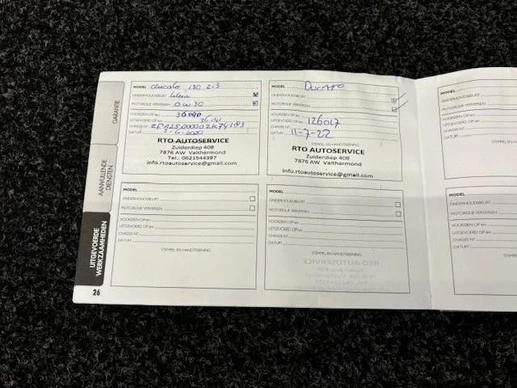 GARANTIE
AANVULLENDE DIENSTEN
UITGEVOERDE WERKZAAMHEDEN
26
MODEL Ducato 130 2.3
ONDERHOUDSBEURT
MOTOROLIE VERVERSEN 0W30
VOORZIEN OP km
UITGEVOERD OP km
CHASSIS N°
DATUM
RTO AUTOSERVICE
Zuiderdiep 408
7876 AW Valthermond
Tel.: 0621544397
info.rtoautoservice@gmail.com
MODEL DUCATO
ONDERHOUDSBEURT
MOTOROLIE VERVERSEN
VOORZIEN OP km
UITGEVOERD OP km 126017
CHASSIS N°
DATUM 11-7-22
STEMPEL EN HANDTEKENING
RTO AUTOSERVICE
Zuiderdiep 408
7876 AW Valthermond
info.rtoautoservice@gmail.com
MODEL
ONDERHOUDSBEURT
MOTOROLIE VERVERSEN
VOORZIEN OP km
UITGEVOERD OP km
CHASSIS N°
DATUM
STEMPEL EN HANDTEKENING
MODEL
ONDERHOUDSBEURT
MOTOROLIE VERVERSEN
VOORZIEN OP km
UITGEVOERD OP km
CHASSIS N°
DATUM
STEMPEL EN HANDTEKENING
RTO AUTOSERVICE
MODEL
ONDERHOUDSBEURT
MOTOROLIE VERVERSEN
VOORZIEN OP km
UITGEVOERD OP km
CHASSIS N°
DATUM
MODEL
ONDERHOUDSBEURT
MOTOROLIE VERVERSEN
VOORZIEN OP km
UITGEVOERD OP km
CHASSIS N°
DATUM